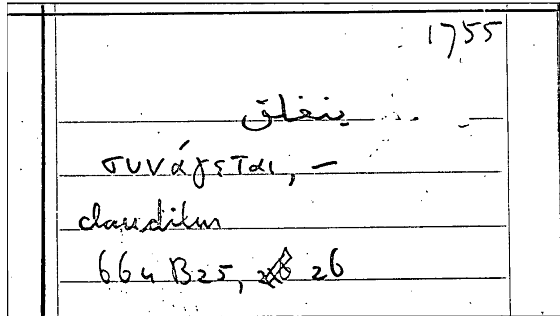 1755
ينغلق
συνάγεται, –
clauditur
664 B25, 26